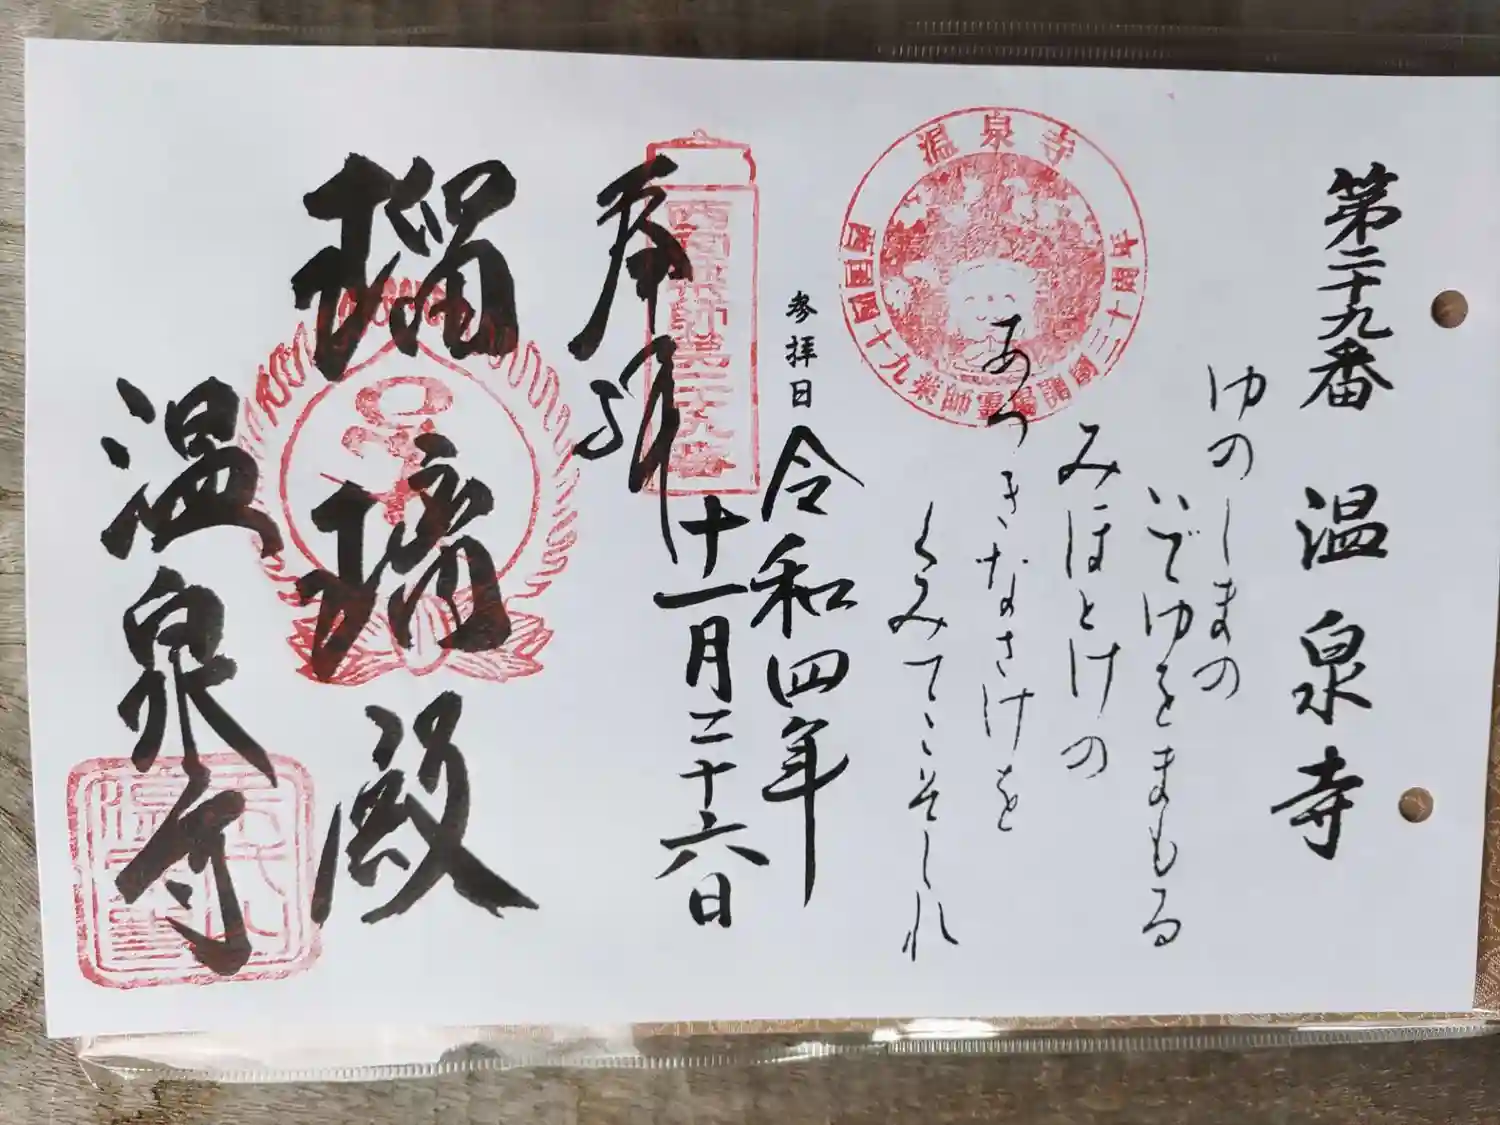 第二十九番 温泉寺
ゆのしまの
いでゆをまもる
みほとけの
あつきなさけを
くみてこそしれ
温泉寺
西国四十九薬師霊場
参拝日 令和四年
十一月二十六日
奉拝
瑠璃殿
温泉寺